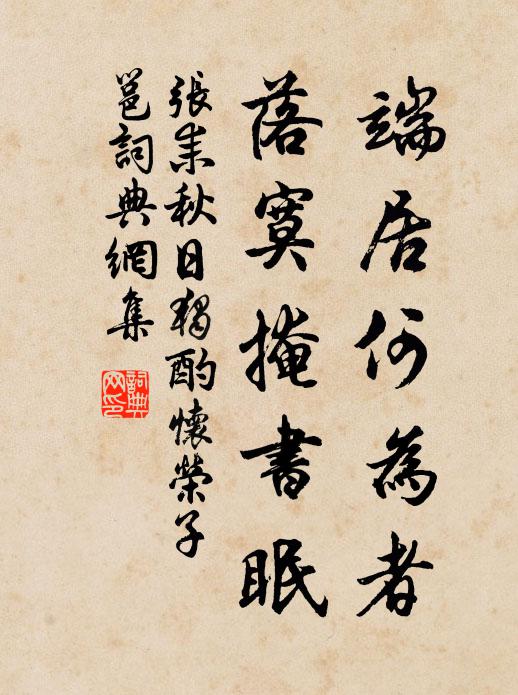 端居何為者
落寞掩書眠
張耒秋日獨酌懷榮子
邕詞典網集
詞典
网印